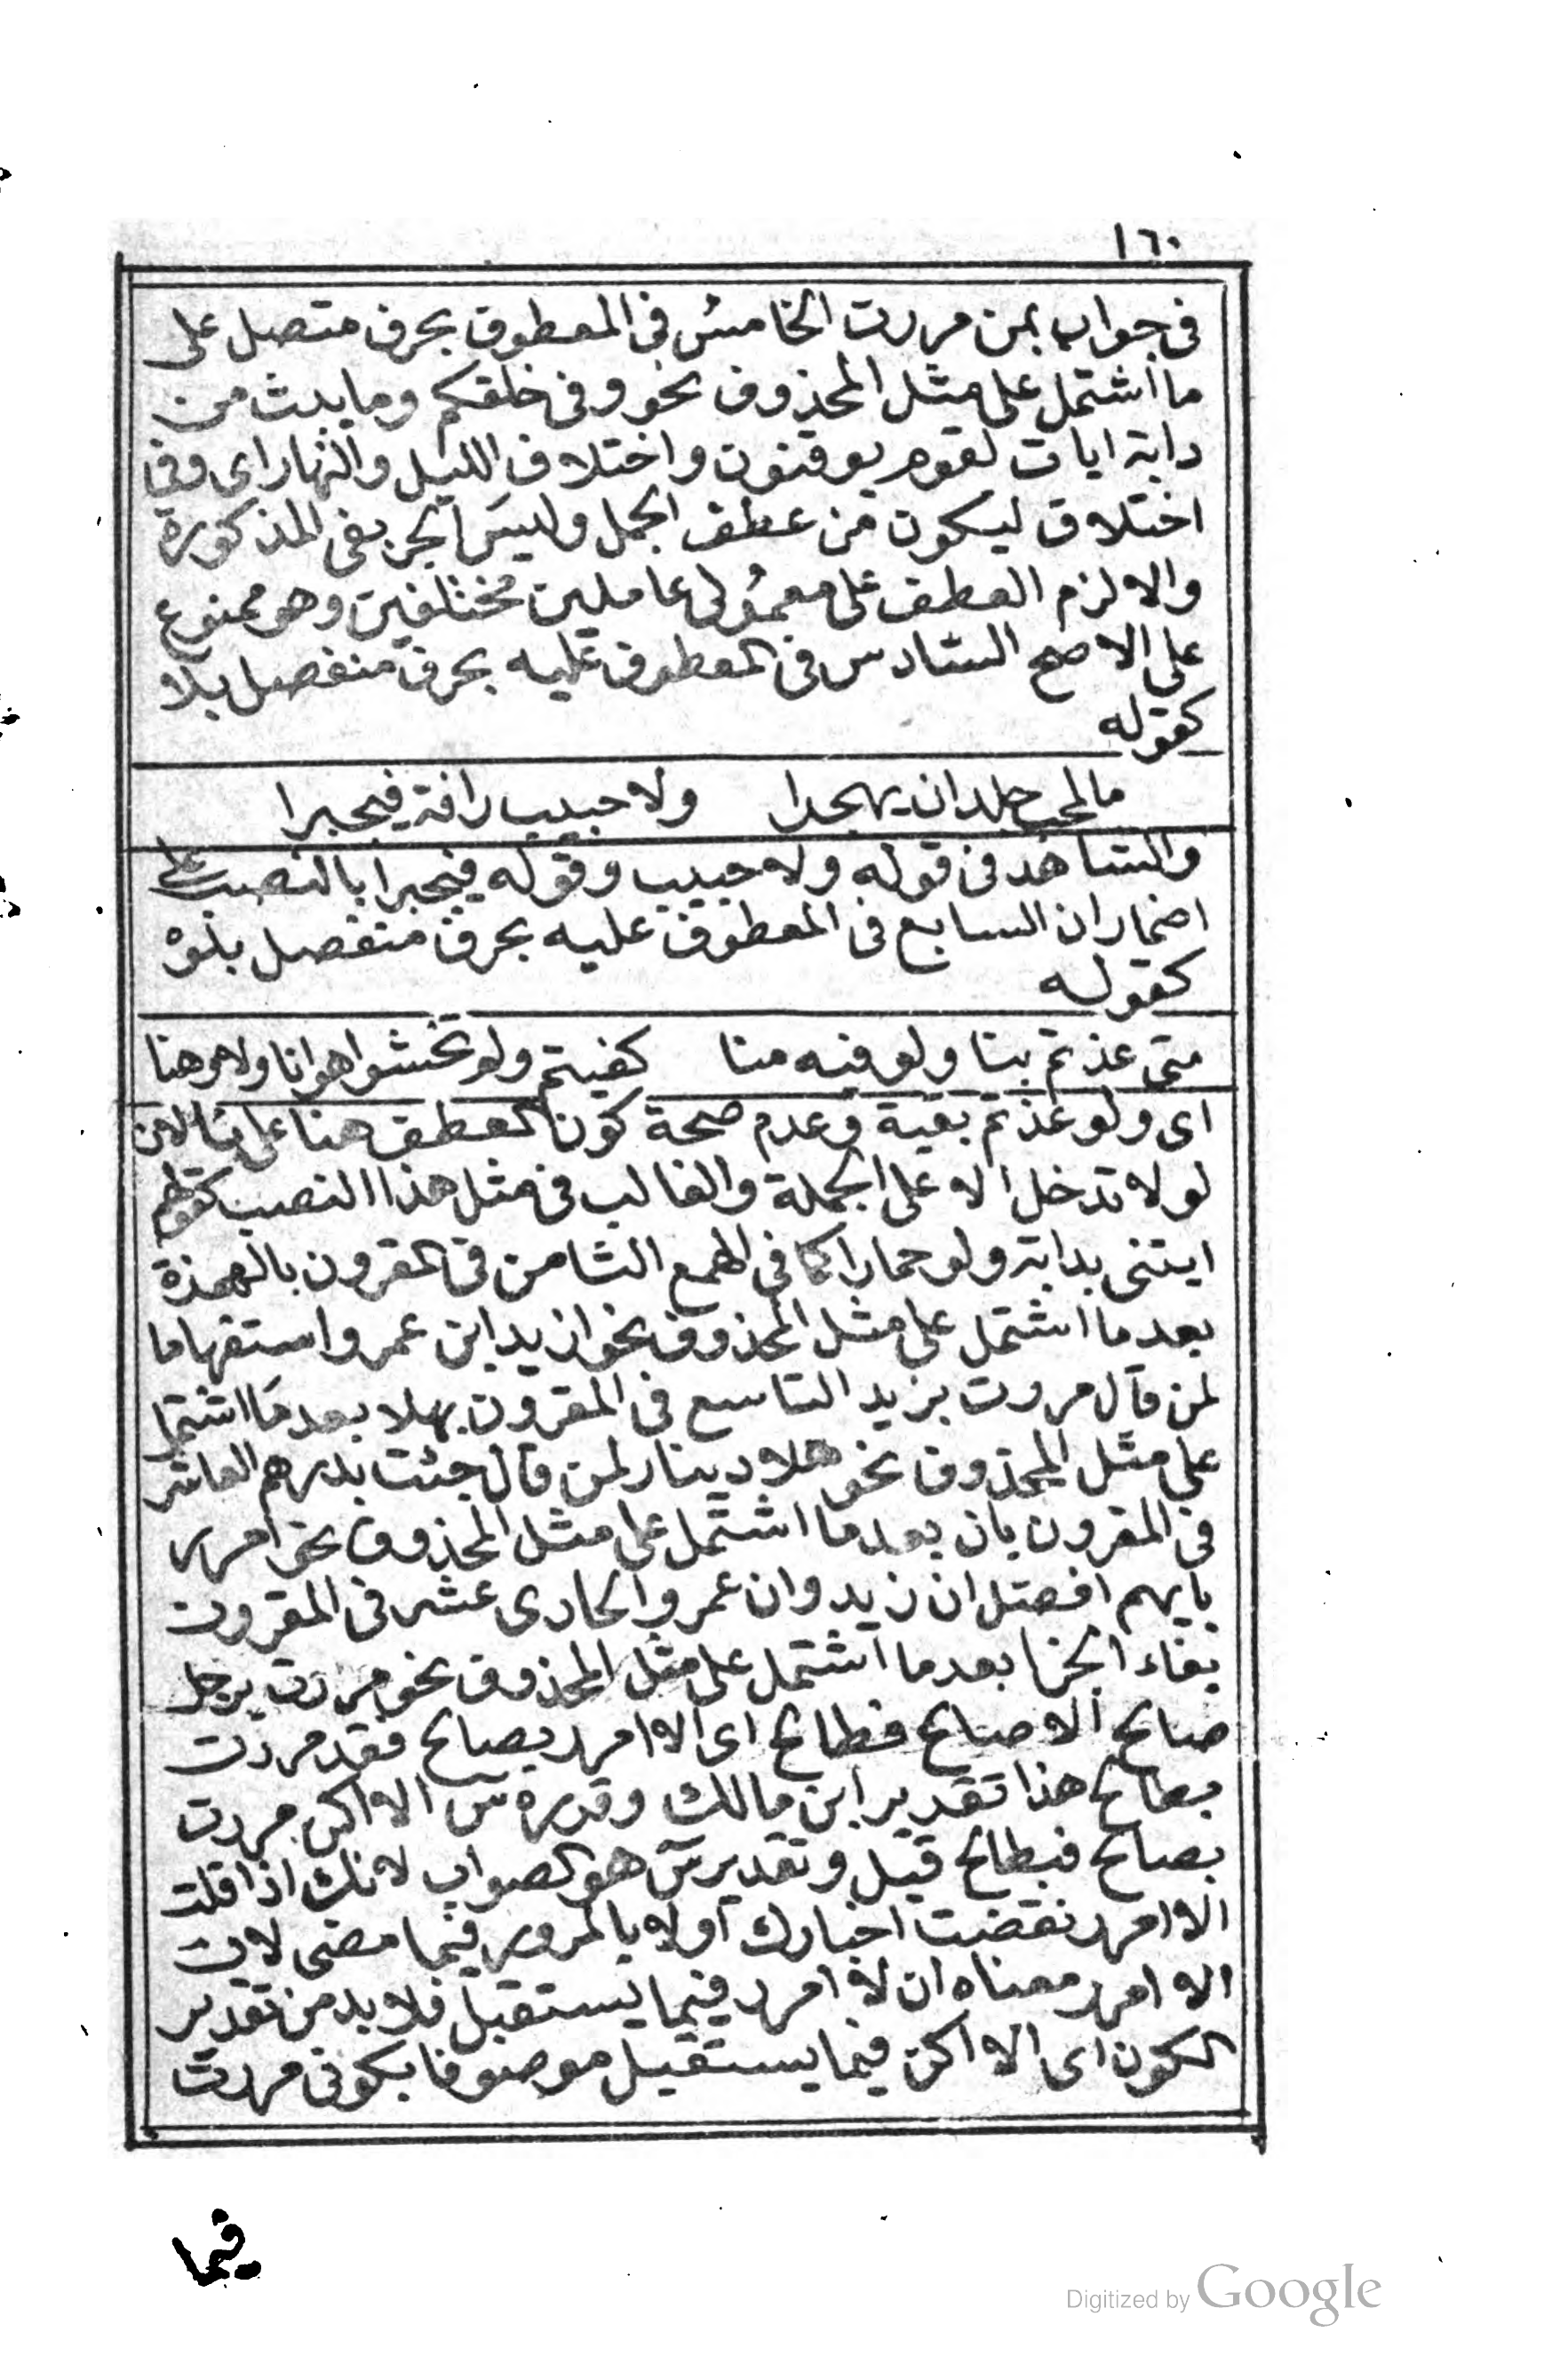 ١٦٠
فى جواب بمن مررت الخامس فى المعطوف بحرف متصل على
ما اشتمل على مثل المحذوف نحو وفى خلقكم وما يبث من
دابة ايات لقوم يوقنون واختلاف الليل والنهار اى وفى
اختلاف ليكون من عطف الجمل وليس الجر بفى المذكورة
والا لزم العطف على معمولى عاملين مختلفين وهو ممنوع
على الاصح السادس فى المعطوف عليه بحرف منفصل بلا
كقوله
ما لمحب جلد ان يهجرا ولا حبيب رافة فيجبرا
والشاهد فى قوله ولا حبيب وقوله فيجبرا بالنصب على
اضمار ان السابع فى المعطوف عليه بحرف منفصل بلو
كقوله
متى عذتم بنا ولو فيه منا كفيتم ولو تخشوا هوانا ولا وهنا
اى ولو عذتم بفية وعدم صحة كون العطف هنا على بنا لان
لو لا تدخل الا على الجملة والغالب فى مثل هذا النصب كقولهم
ايتنى بدابة ولو حمارا كما فى الهمع الثامن فى المقرون بالهمزة
بعد ما اشتمل على مثل المحذوف نحو ازيد ابن عمرو استفهاما
لمن قال مررت بزيد التاسع فى المقرون بهلا بعد ما اشتمل
على مثل المحذوف نحو هلا دينار لمن قال جئت بدرهم العاشر
فى المقرون بان بعد ما اشتمل على مثل المحذوف نحو امرر
بايهم افضل ان زيد وان عمرو الحادى عشر فى المقرون
بفاء الجزا بعد ما اشتمل على مثل المحذوف نحو مررت برجل
صالح الا صالح فطالح اى الا امرر بصالح فقد مررت
بطالح هذا تقدير ابن مالك وقدره س الا اكن مررت
بصالح فبطالح قيل وتقدير س هو الصواب لانك اذا قلت
الا امرر نقضت اخبارك اولا بالمرور فيما مضى لان
الا امرر معناه ان لا امرر فيما يستقبل فلا بد من تقدير
الكون اى الا اكن فيما يستقبل موصوفا بكونى مررت
فيما
Digitized by Google